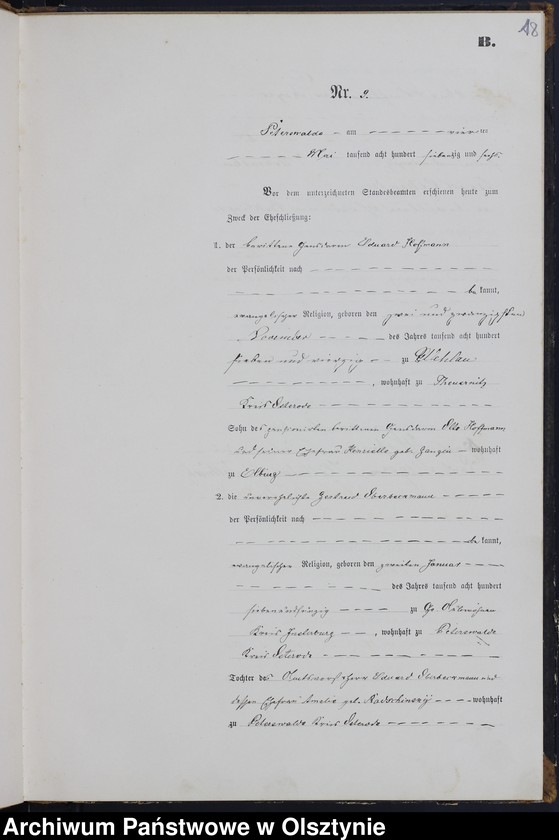 18
B.
Nr. 9.
Peterswalde am vierten
Mai tausend acht hundert siebenzig und sechs
Vor dem unterzeichneten Standesbeamten erschienen heute zum
Zweck der Eheschließung:
1. der berittene Gensdarm Eduard Hoffmann
der Persönlichkeit nach
be kannt,
evangelischer Religion, geboren den zwei und zwanzigsten
November des Jahres tausend acht hundert
sieben und vierzig zu Wehlau
, wohnhaft zu Theuernitz
Kreis Osterode
Sohn des pensionirten berittenen Gensdarm Otto Hoffmann
und seiner Ehefrau Henriette geb. wohnhaft
zu Elbing
2. die unverehelichte
der Persönlichkeit nach
be kannt,
evangelischer Religion, geboren den zweiten Januar
des Jahres tausend acht hundert
siebenundfünfzig zu Gr.
Kreis Insterburg , wohnhaft zu Peterswalde
Kreis Osterode
Tochter des Eduard und
dessen Ehefrau Amalie geb. wohnhaft
zu Peterswalde Kreis Osterode
Archiwum Państwowe w Olsztynie